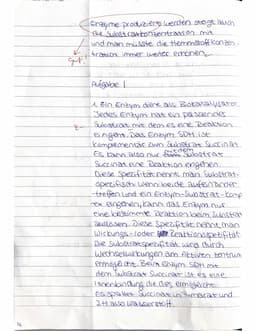 Enzyme produziert werden steigt auch
die Substratkonzentration mit
und man müsste die Hemmstoffkonzen-
tration immer weiter erhöhen.
gut!
Aufgabe 1
1. Ein Enzym dient als Biokatalysator.
Jedes Enzym hat ein passendes
Substrat mit dem es eine Reaktion
eingeht. Das Enzym SDH ist
komplementär zum Substrat Succinat.
Es kann also nur mit dem Substrat
Succinat eine Reaktion eingehen.
Diese Spezifität nennt man Substrat-
spezifisch. Wenn beide aufeinander
treffen und ein Enzym-Substrat-Komp-
lex eingehen, kann das Enzym nur
eine bestimmte Reaktion beim Substrat
auslösen. Diese Spezifität nennt man
Wirkungs- oder Reaktionsspezifität.
Die Substratspezifität wird durch
Wechselwirkungen am aktiven Zentrum
ermöglicht. Beim Enzym SDH mit
dem Substrat Succinat ist es eine
Ionenbindung die das ermöglicht.
Es spaltet Succinat in Fumarat und
2H also Wasserstoff.